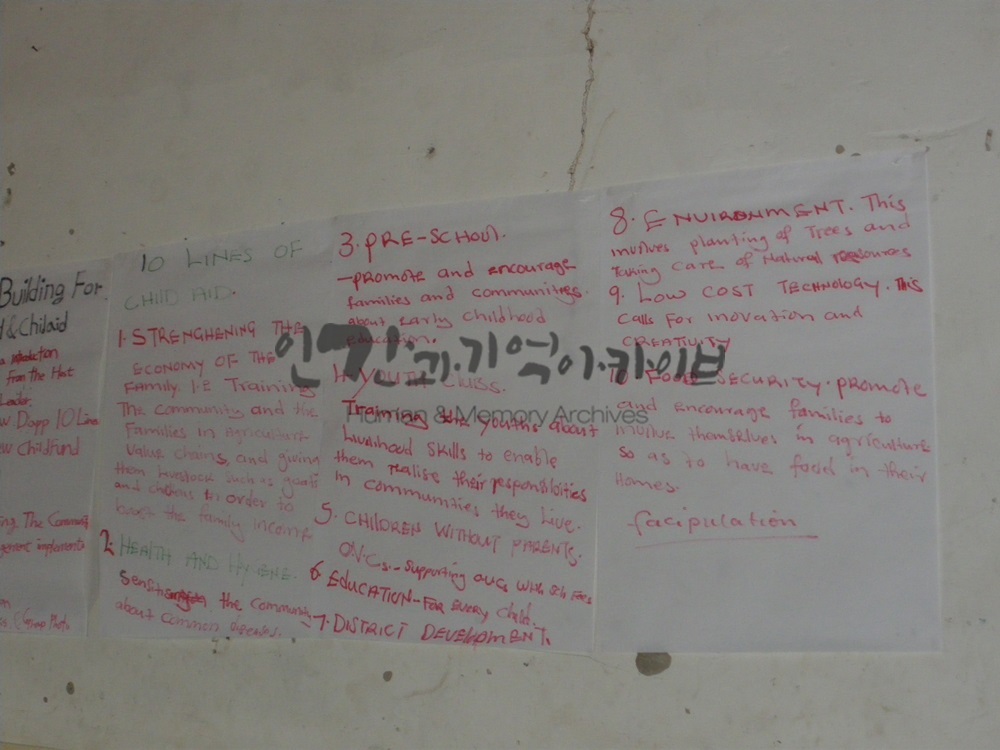 Building For
& Chilaid
from the Host
Leader.
Dapp 10 Line
Childfund
The Community
10 LINES OF
CHILD AID.
1. STRENGHENING THE
ECONOMY OF THE
Family. I.E Training
The Community and the
Families in Agriculture
Value chains, and giving
them livestock such as goats
and chickens to order to
boost the family income
2. HEALTH AND HYIENE.
the Community
about Common diseases.
3. PRE-SCHOOL.
-promote and encourage
families and communities.
about Early childhood
education.
4. YOUTH CLUBS.
Training the youths about
livelihood skills to enable
them realise their responsibilities
in communities they live.
5. CHILDREN WITHOUT PARENTS.
OVCs.-Supporting OVCs with Sch Fees
6. EDUCATION-For Every Child.
7. DISTRICT DEVELOPMENT.
8. ENVIRONMENT. This
involves planting of Trees and
Taking care of Natural resources
9. LOW COST TECHNOLOGY. This
calls for inovation and
CREATIVITY
10. FOOD SECURITY. promote
and encourage families to
involve themselves in agriculture
so as to have food in their
Homes.
facipulation
인간과기억아카이브
Human & Memory Archives